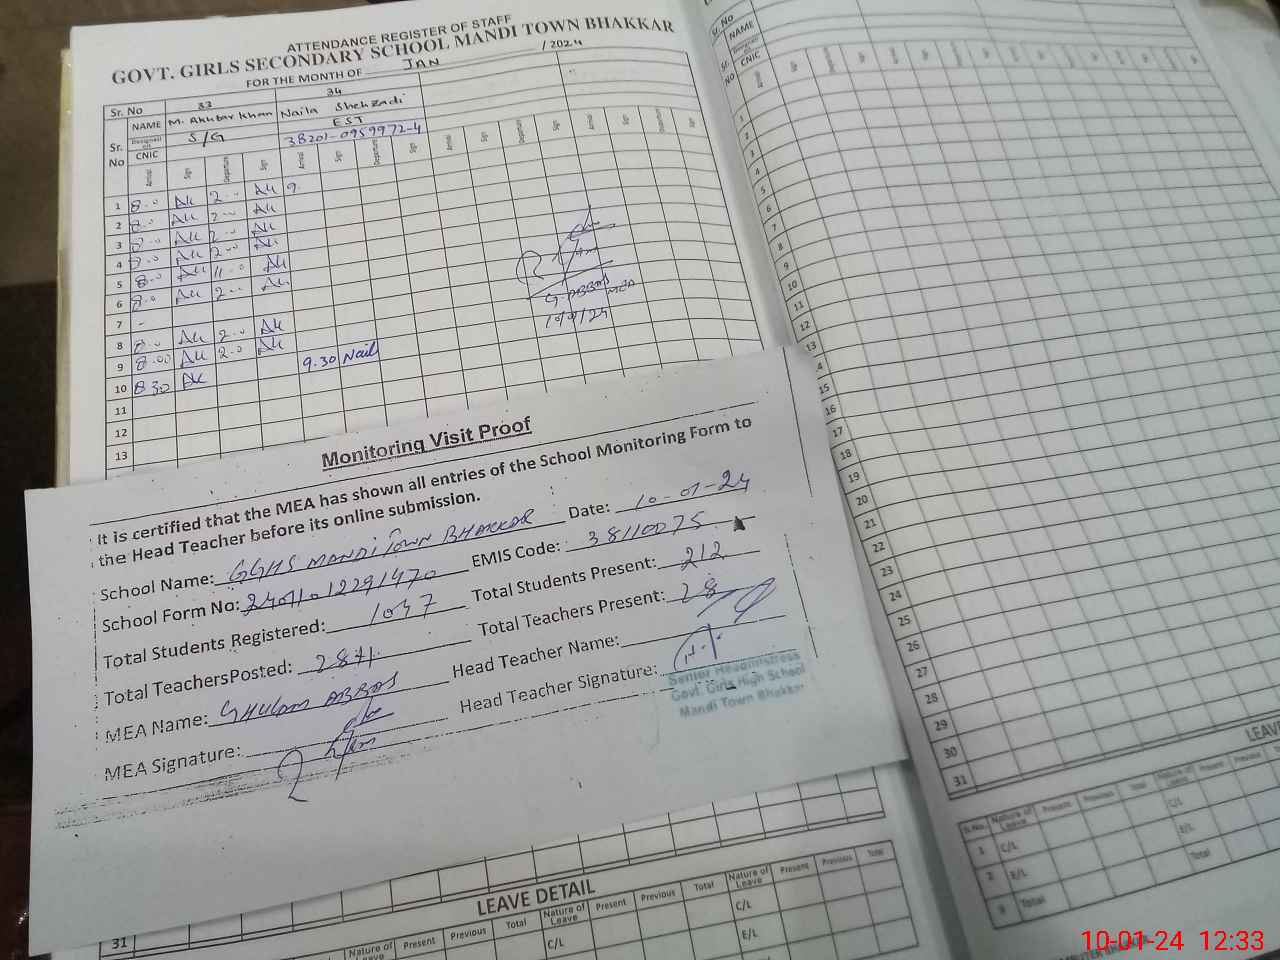 ATTENDANCE REGISTER OF STAFF
GOVT. GIRLS SECONDARY SCHOOL MANDI TOWN BHAKKAR
FOR THE MONTH OF JAN / 2024
Sr. No 33 34
NAME M. Akhtar Khan Naila Shehzadi
Sr. No Designation S/G EST
CNIC 38201-0959972-4
Arrival Sign Departure Sign Arrival Sign Departure Sign Arrival Sign Departure Sign Arrival Sign Departure Sign
1 8.0 AK 2.00 AK 9.
2 8.0 AK 2.00 AK
3 8.00 AK 2.00 AK
4 8.0 AK 2.00 AK
5 8.0 AK 11.0 AK
6 8.0 AK 2.00 AK
7 -
8 8.0 AK 2.00 AK
9 8.00 AK 2.0 AK
10 830 AK 9.30 Nail
11
12
13
G. ABBAS MEA
10/01/24
Monitoring Visit Proof
It is certified that the MEA has shown all entries of the School Monitoring Form to
the Head Teacher before its online submission.
School Name: GGHS MANDI TOWN BHAKKAR Date: 10-01-24
School Form No: 24011012291470 EMIS Code: 38110075
Total Students Registered: 1047 Total Students Present: 212
Total TeachersPosted: 28 Total Teachers Present: 28
MEA Name: GHULAM ABBAS Head Teacher Name:
MEA Signature: Head Teacher Signature:
Senior Headmistress
Govt. Girls High School
Mandi Town Bhakkar
31
LEAVE DETAIL
Nature of Leave Present Previous Total Nature of Leave Present Previous Total Nature of Leave Present Previous Total
C/L C/L
E/L E/L
Sr. No
NAME
Sr. No
CNIC
1
2
3
4
5
6
7
8
9
10
11
12
13
14
15
16
17
18
19
20
21
22
23
24
25
26
27
28
29
30
31
LEAVE
S.No. Nature of Leave Present Previous Total Nature of Leave Present Previous
1 C/L C/L
2 E/L E/L
Total Total
10-01-24 12:33